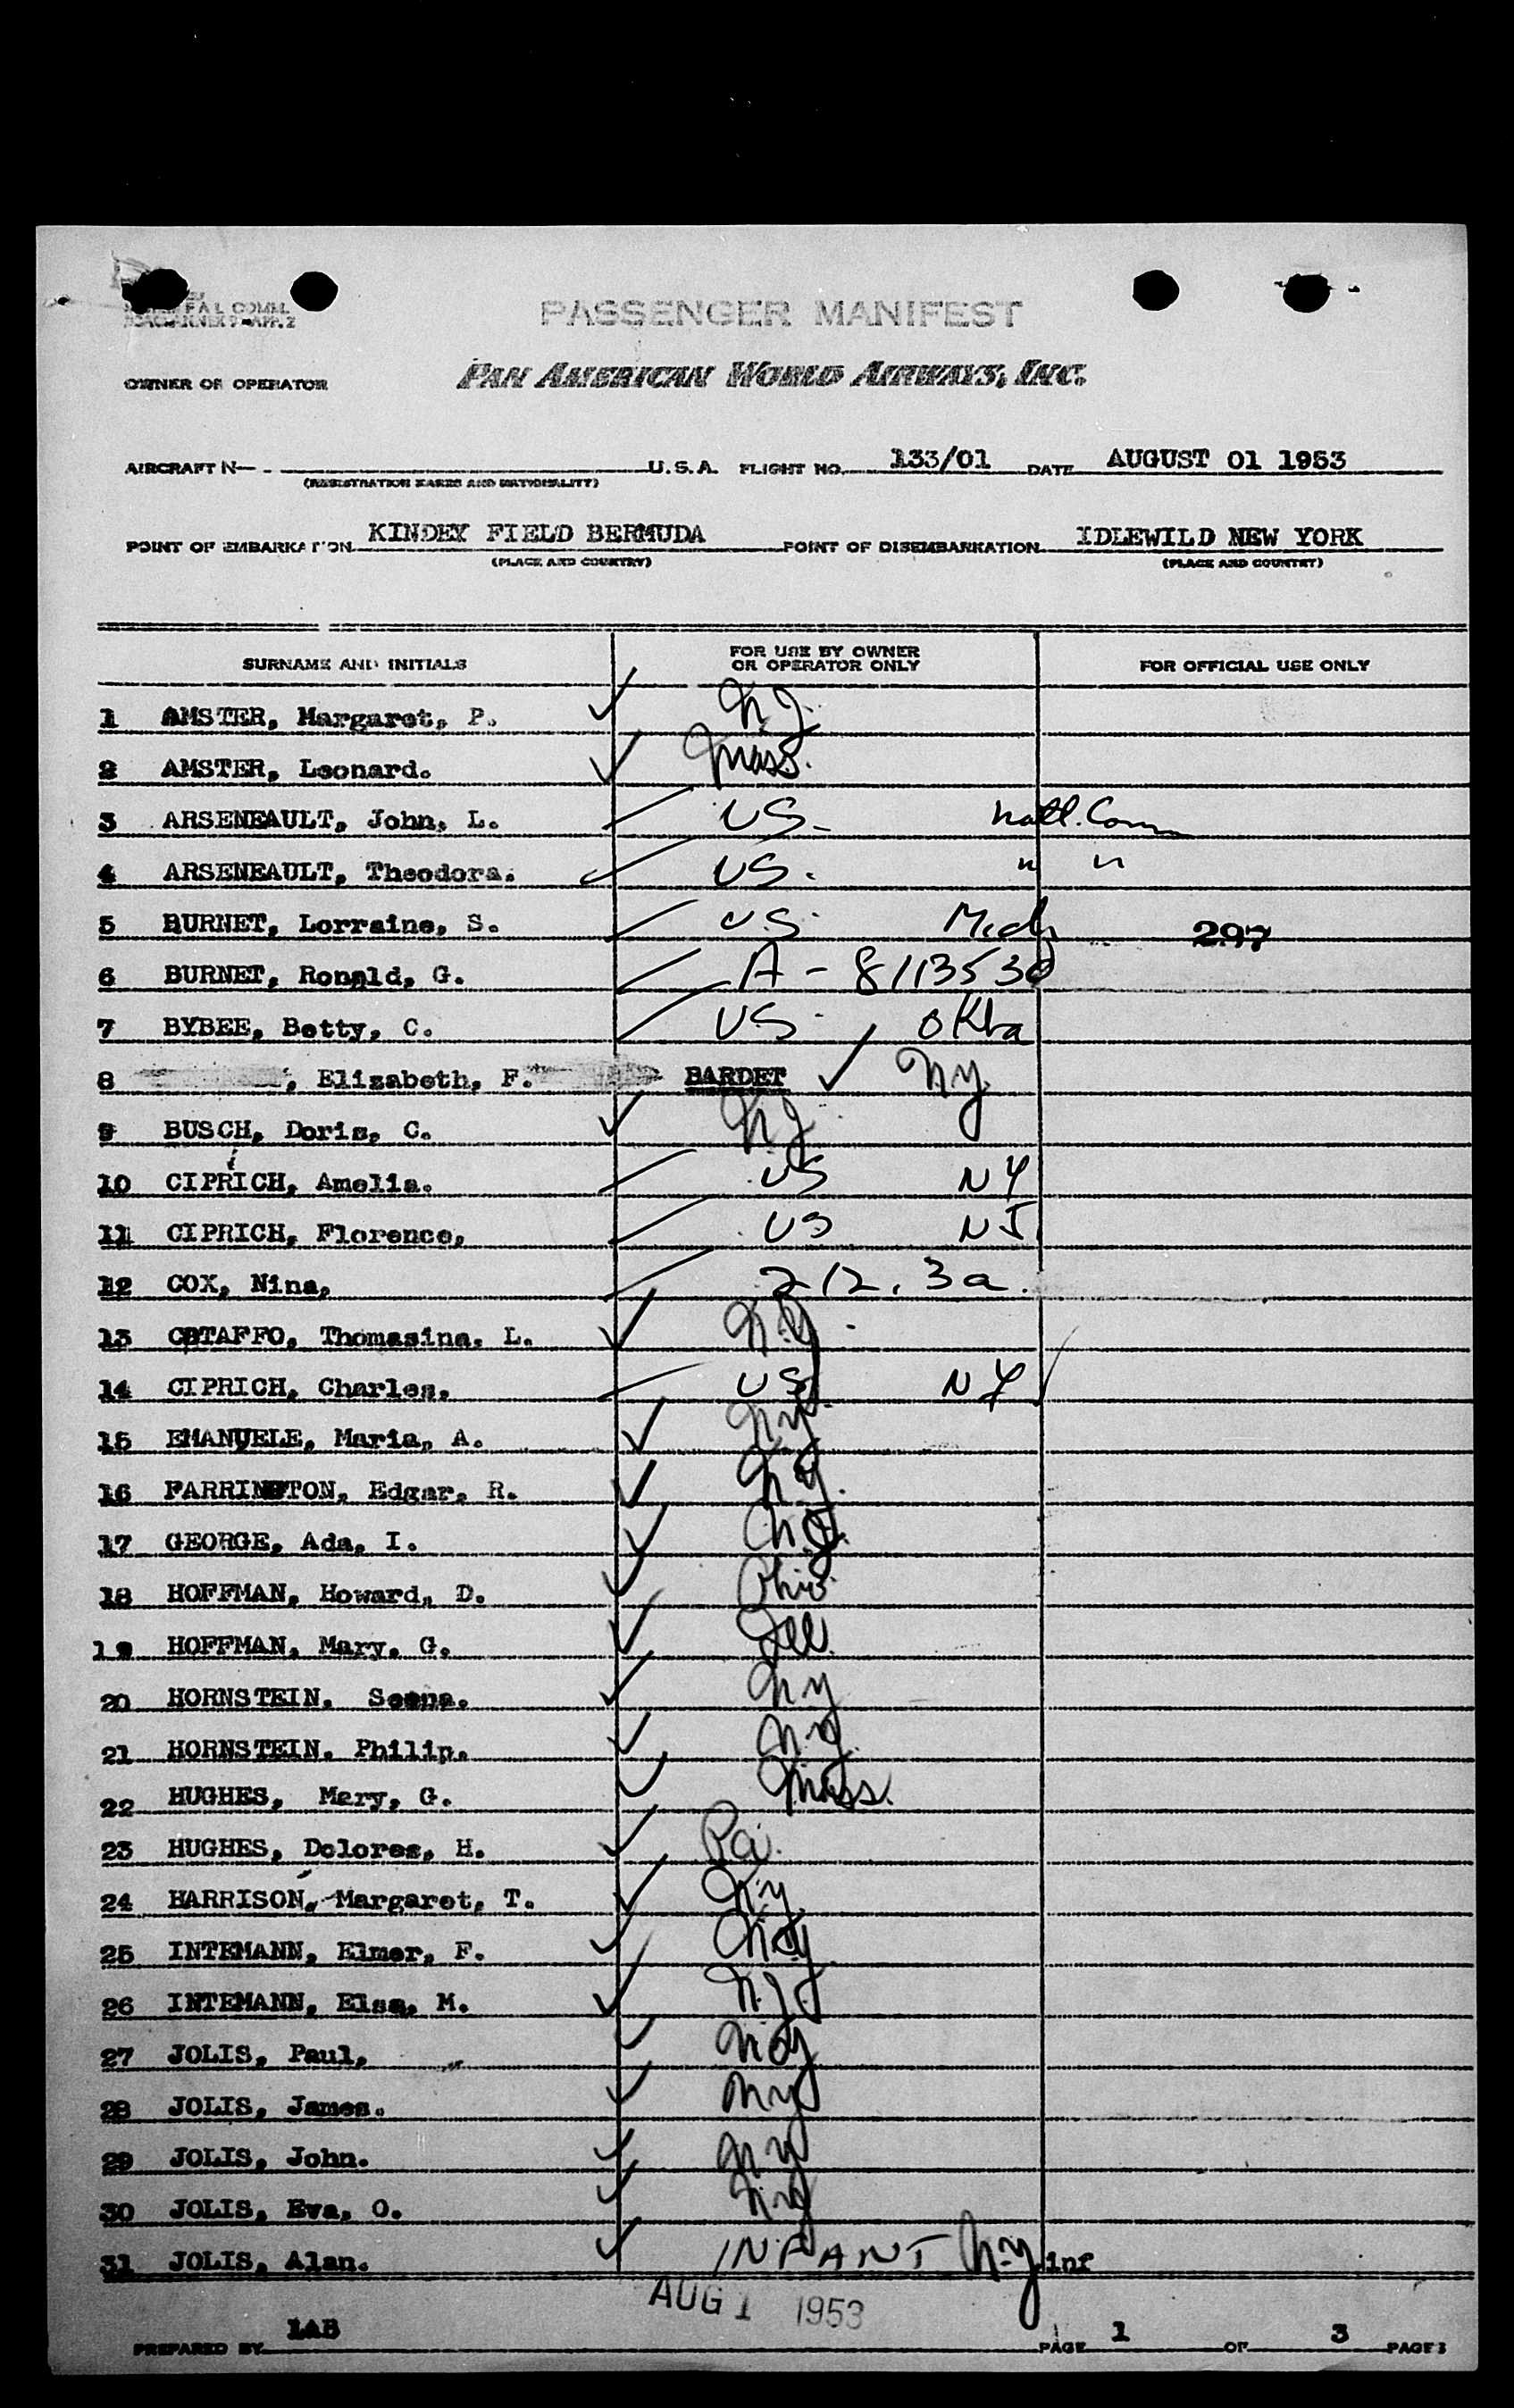 PASSENGER MANIFEST
OWNER OR OPERATOR PAN AMERICAN WORLD AIRWAYS, INC.
AIRCRAFT N— U.S.A. FLIGHT NO. 133/01 DATE AUGUST 01 1953
(REGISTRATION MARKS AND NATIONALITY)
POINT OF EMBARKATION KINDEY FIELD BERMUDA POINT OF DISEMBARKATION IDLEWILD NEW YORK
(PLACE AND COUNTRY) (PLACE AND COUNTRY)
SURNAME AND INITIALS FOR USE BY OWNER OR OPERATOR ONLY FOR OFFICIAL USE ONLY
1 AMSTER, Margaret, P. N.J.
2 AMSTER, Leonard. Mass.
3 ARSENEAULT, John, L. US- natl. Comm
4 ARSENEAULT, Theodora. US. " "
5 BURNET, Lorraine, S. US. Mich 297
6 BURNET, Ronald, G. A-8113530
7 BYBEE, Betty, C. US. Okla
8 , Elizabeth, F. BARDET NY
9 BUSCH, Doris, C. NJ
10 CIPRICH, Amelia. US NY
11 CIPRICH, Florence, US NJ
12 COX, Nina, 212.3a.
13 CATAFFO, Thomasina, L. N.Y.
14 CIPRICH, Charles, US NY
15 EMANUELE, Maria, A. NY
16 FARRINGTON, Edgar, R. N.Y.
17 GEORGE, Ada, I. N.J.
18 HOFFMAN, Howard, D. Ohio
19 HOFFMAN, Mary, G. Ill.
20 HORNSTEIN, Seena. NY
21 HORNSTEIN, Philip. NY.
22 HUGHES, Mary, G. Mass.
23 HUGHES, Dolores, H. Pa.
24 HARRISON, Margaret, T. N.Y.
25 INTEMANN, Elmer, F. N.Y
26 INTEMANN, Elsa, M. N.J
27 JOLIS, Paul, N.Y
28 JOLIS, James. NY
29 JOLIS, John. NY
30 JOLIS, Eva, O. NY
31 JOLIS, Alan. INFANT N-Y inf
AUG 1 1953
PREPARED BY LAB PAGE 1 OF 3 PAGES